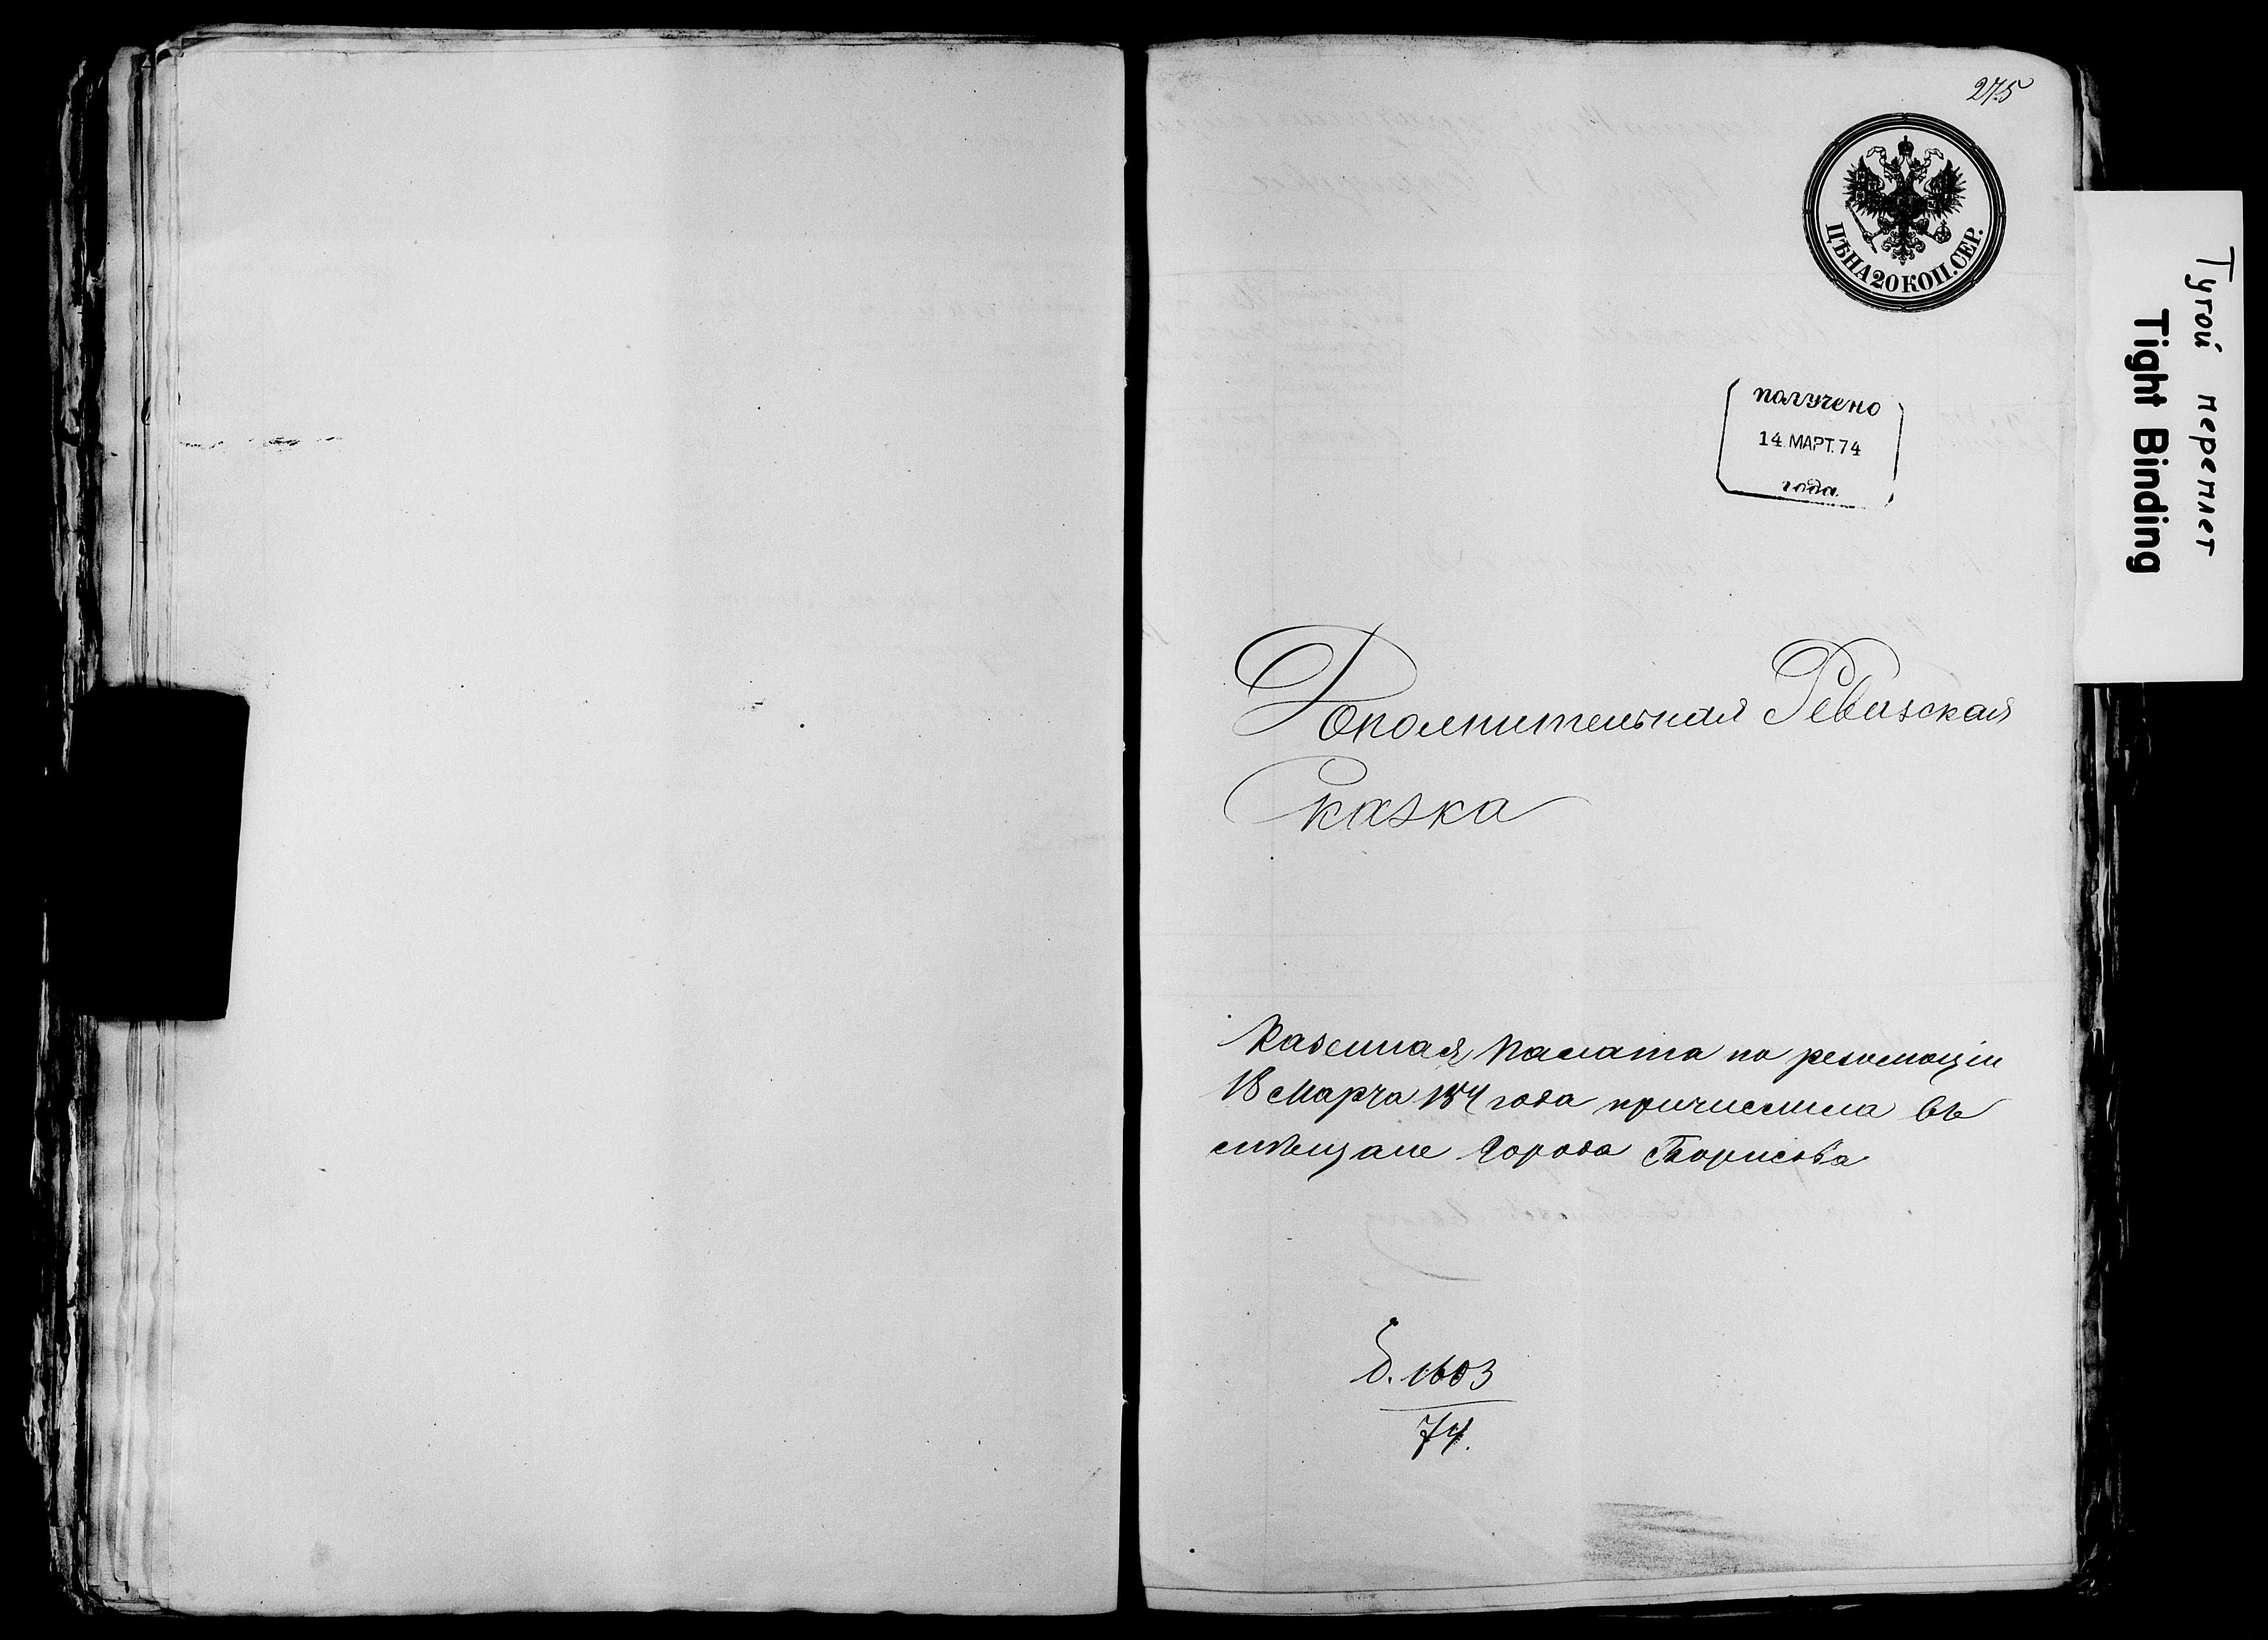 275
ЦѢНА 20 КОП. СЕР.
получено
14. МАРТ. 74
года
Дополнительная Ревизская
Сказка
Казенная Палата по резолюціи
18 Марта 1874 года причислила въ
мѣщане Города Борисова
д. 1603
74.
Тугой переплет
Tight Binding